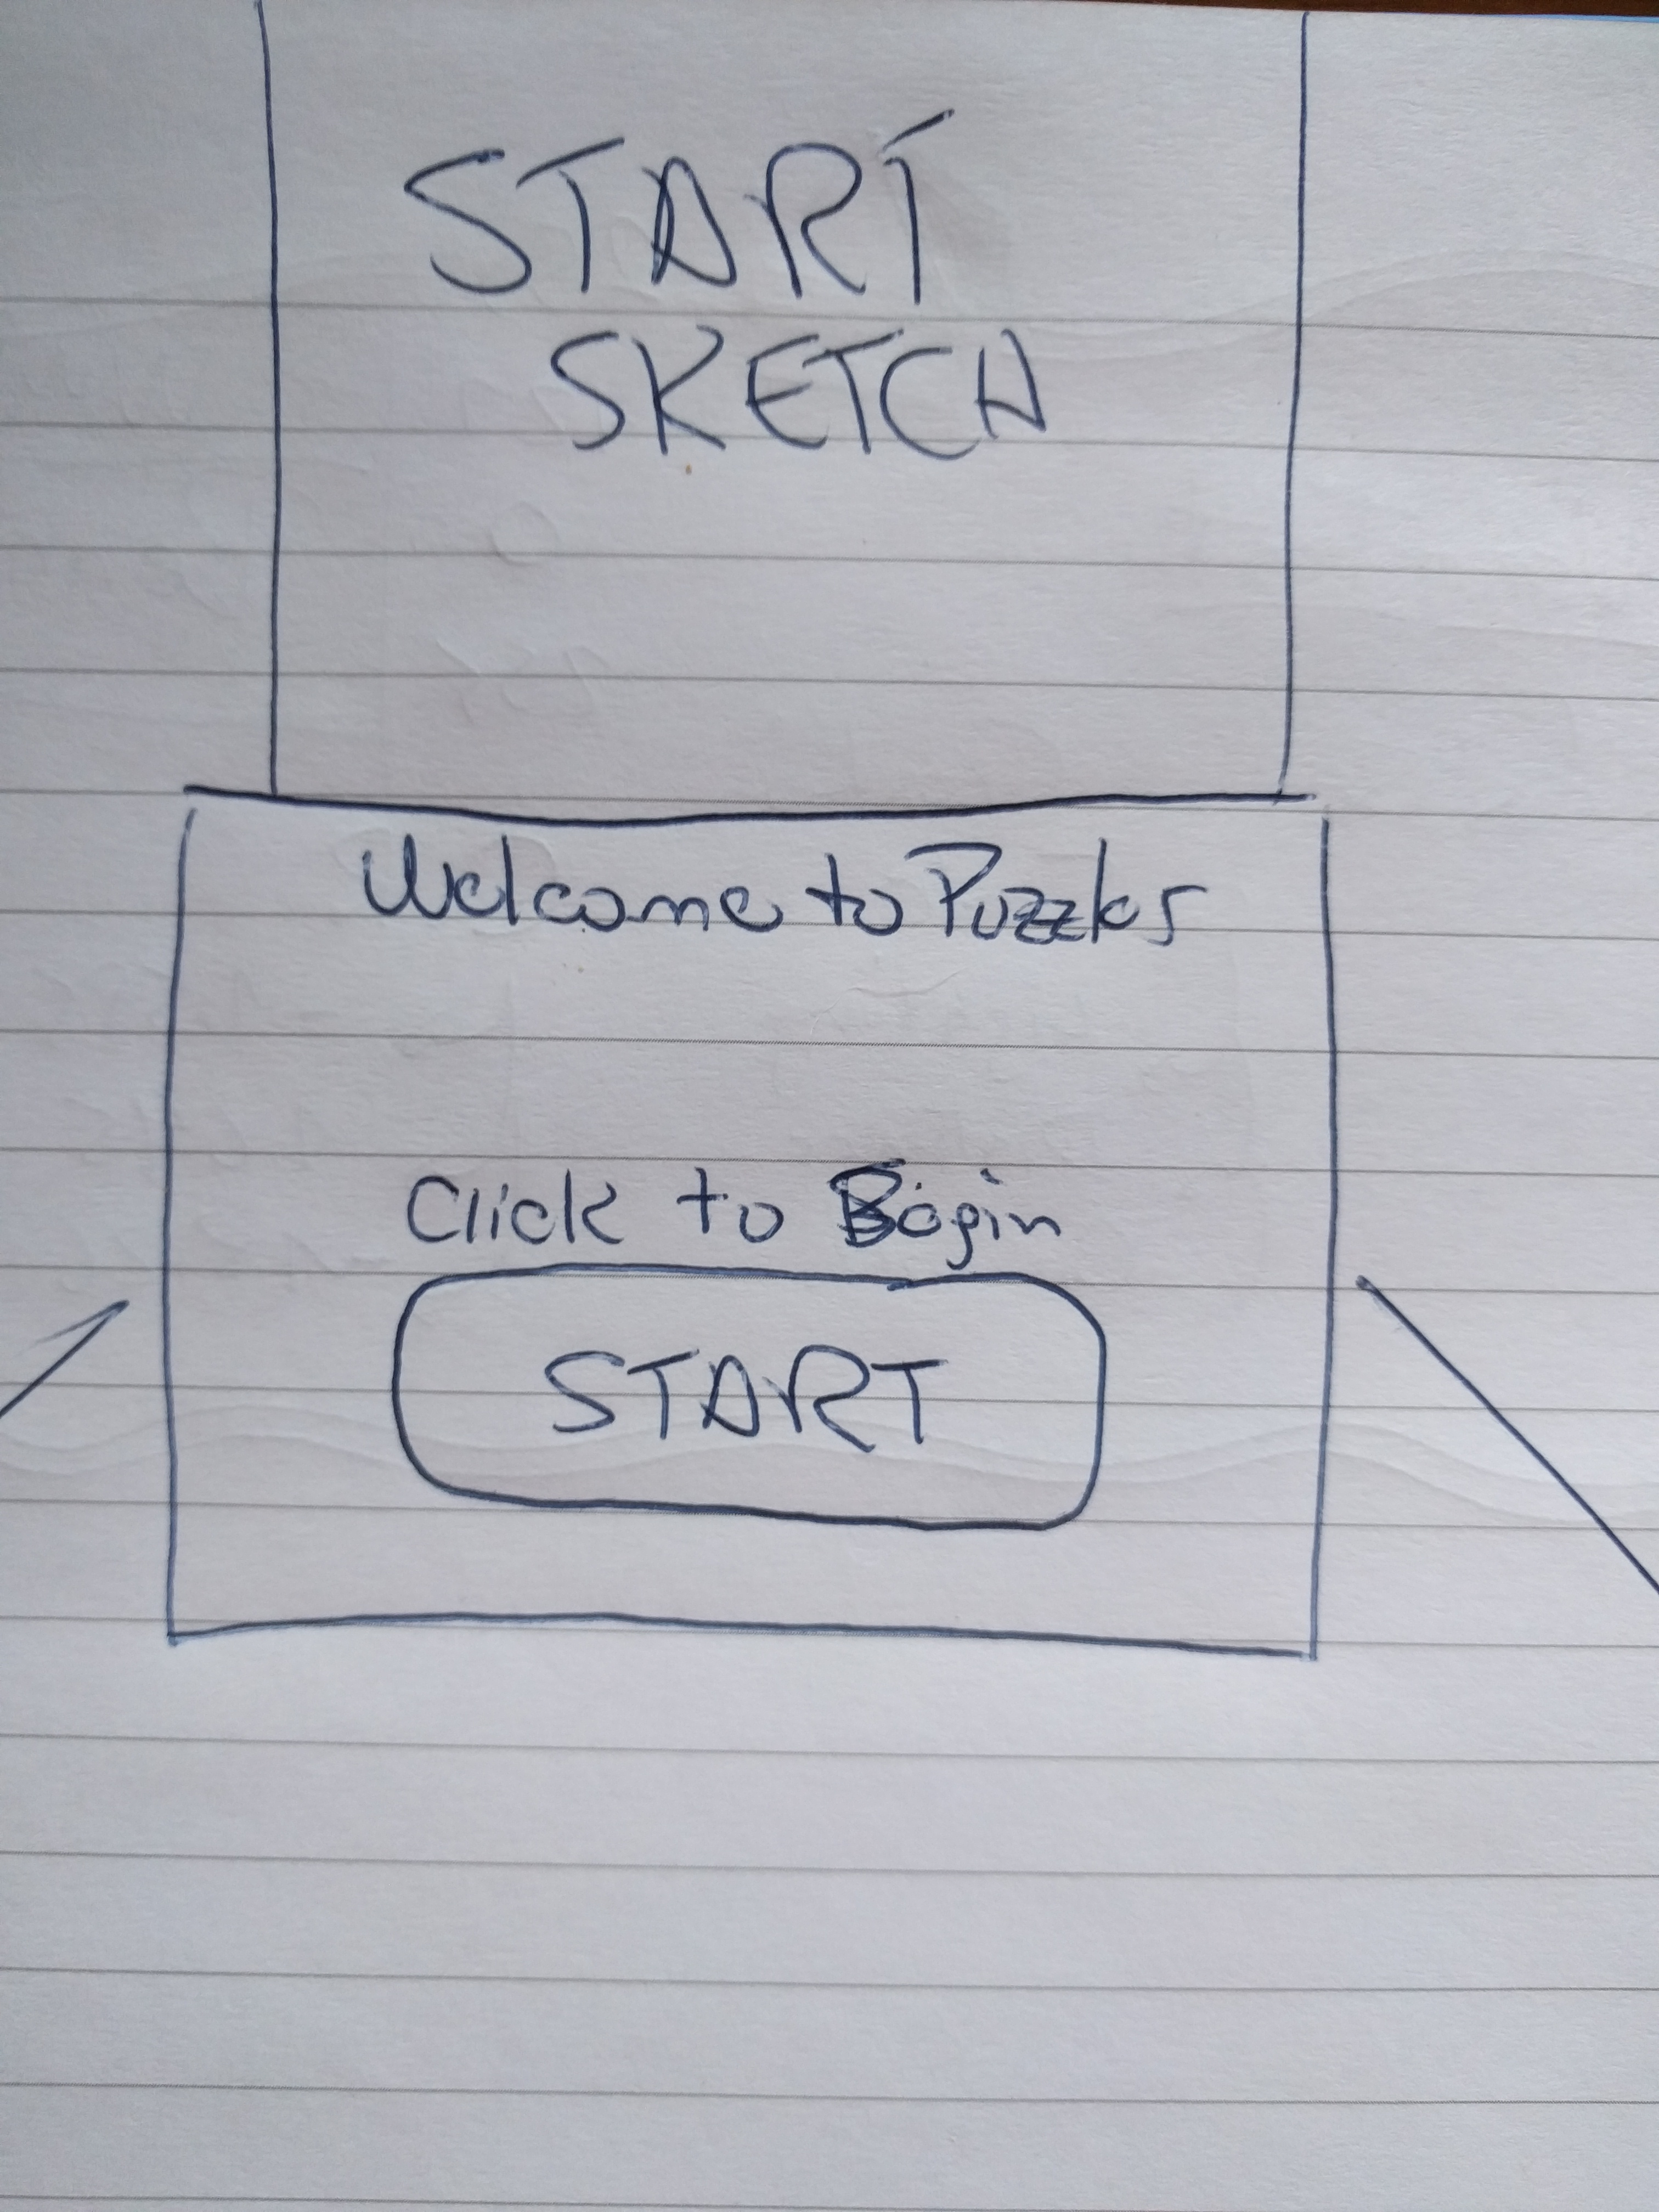 START
SKETCH
Welcome to Puzzles
Click to Begin
START